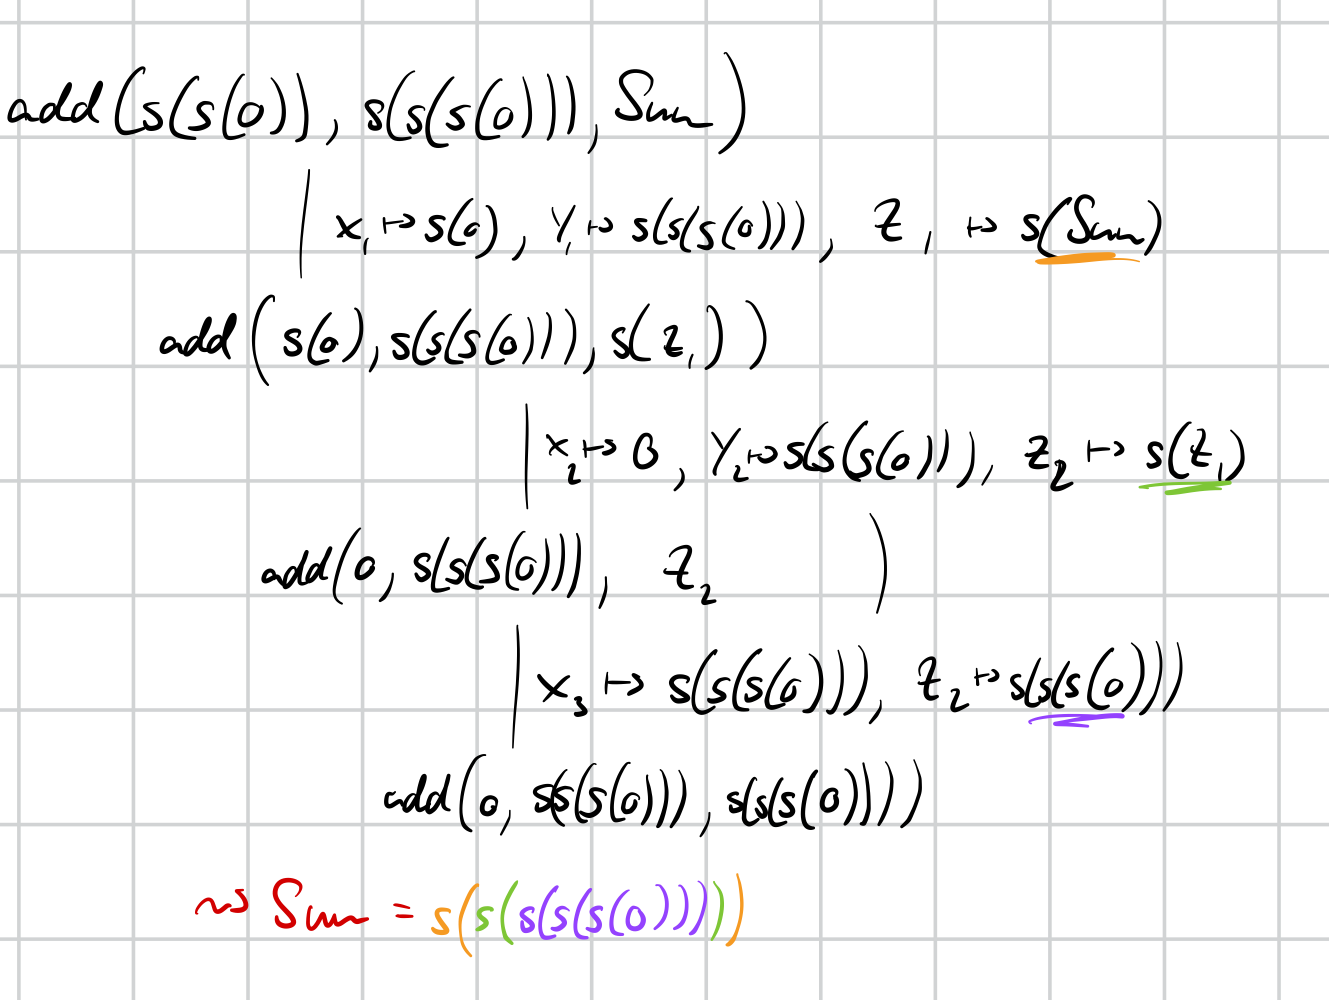 add(s(s(0)), s(s(s(0))), Sum)
X₁ ↦ s(0), Y₁ ↦ s(s(s(0))), Z₁ ↦ s(Sum)
add(s(0), s(s(s(0))), s(Z₁))
X₂ ↦ 0, Y₂ ↦ s(s(s(0))), Z₂ ↦ s(Z₁)
add(0, s(s(s(0))), Z₂)
X₃ ↦ s(s(s(0))), Z₂ ↦ s(s(s(0)))
add(0, s(s(s(0))), s(s(s(0))))
⇝ Sum = s(s(s(s(s(0)))))